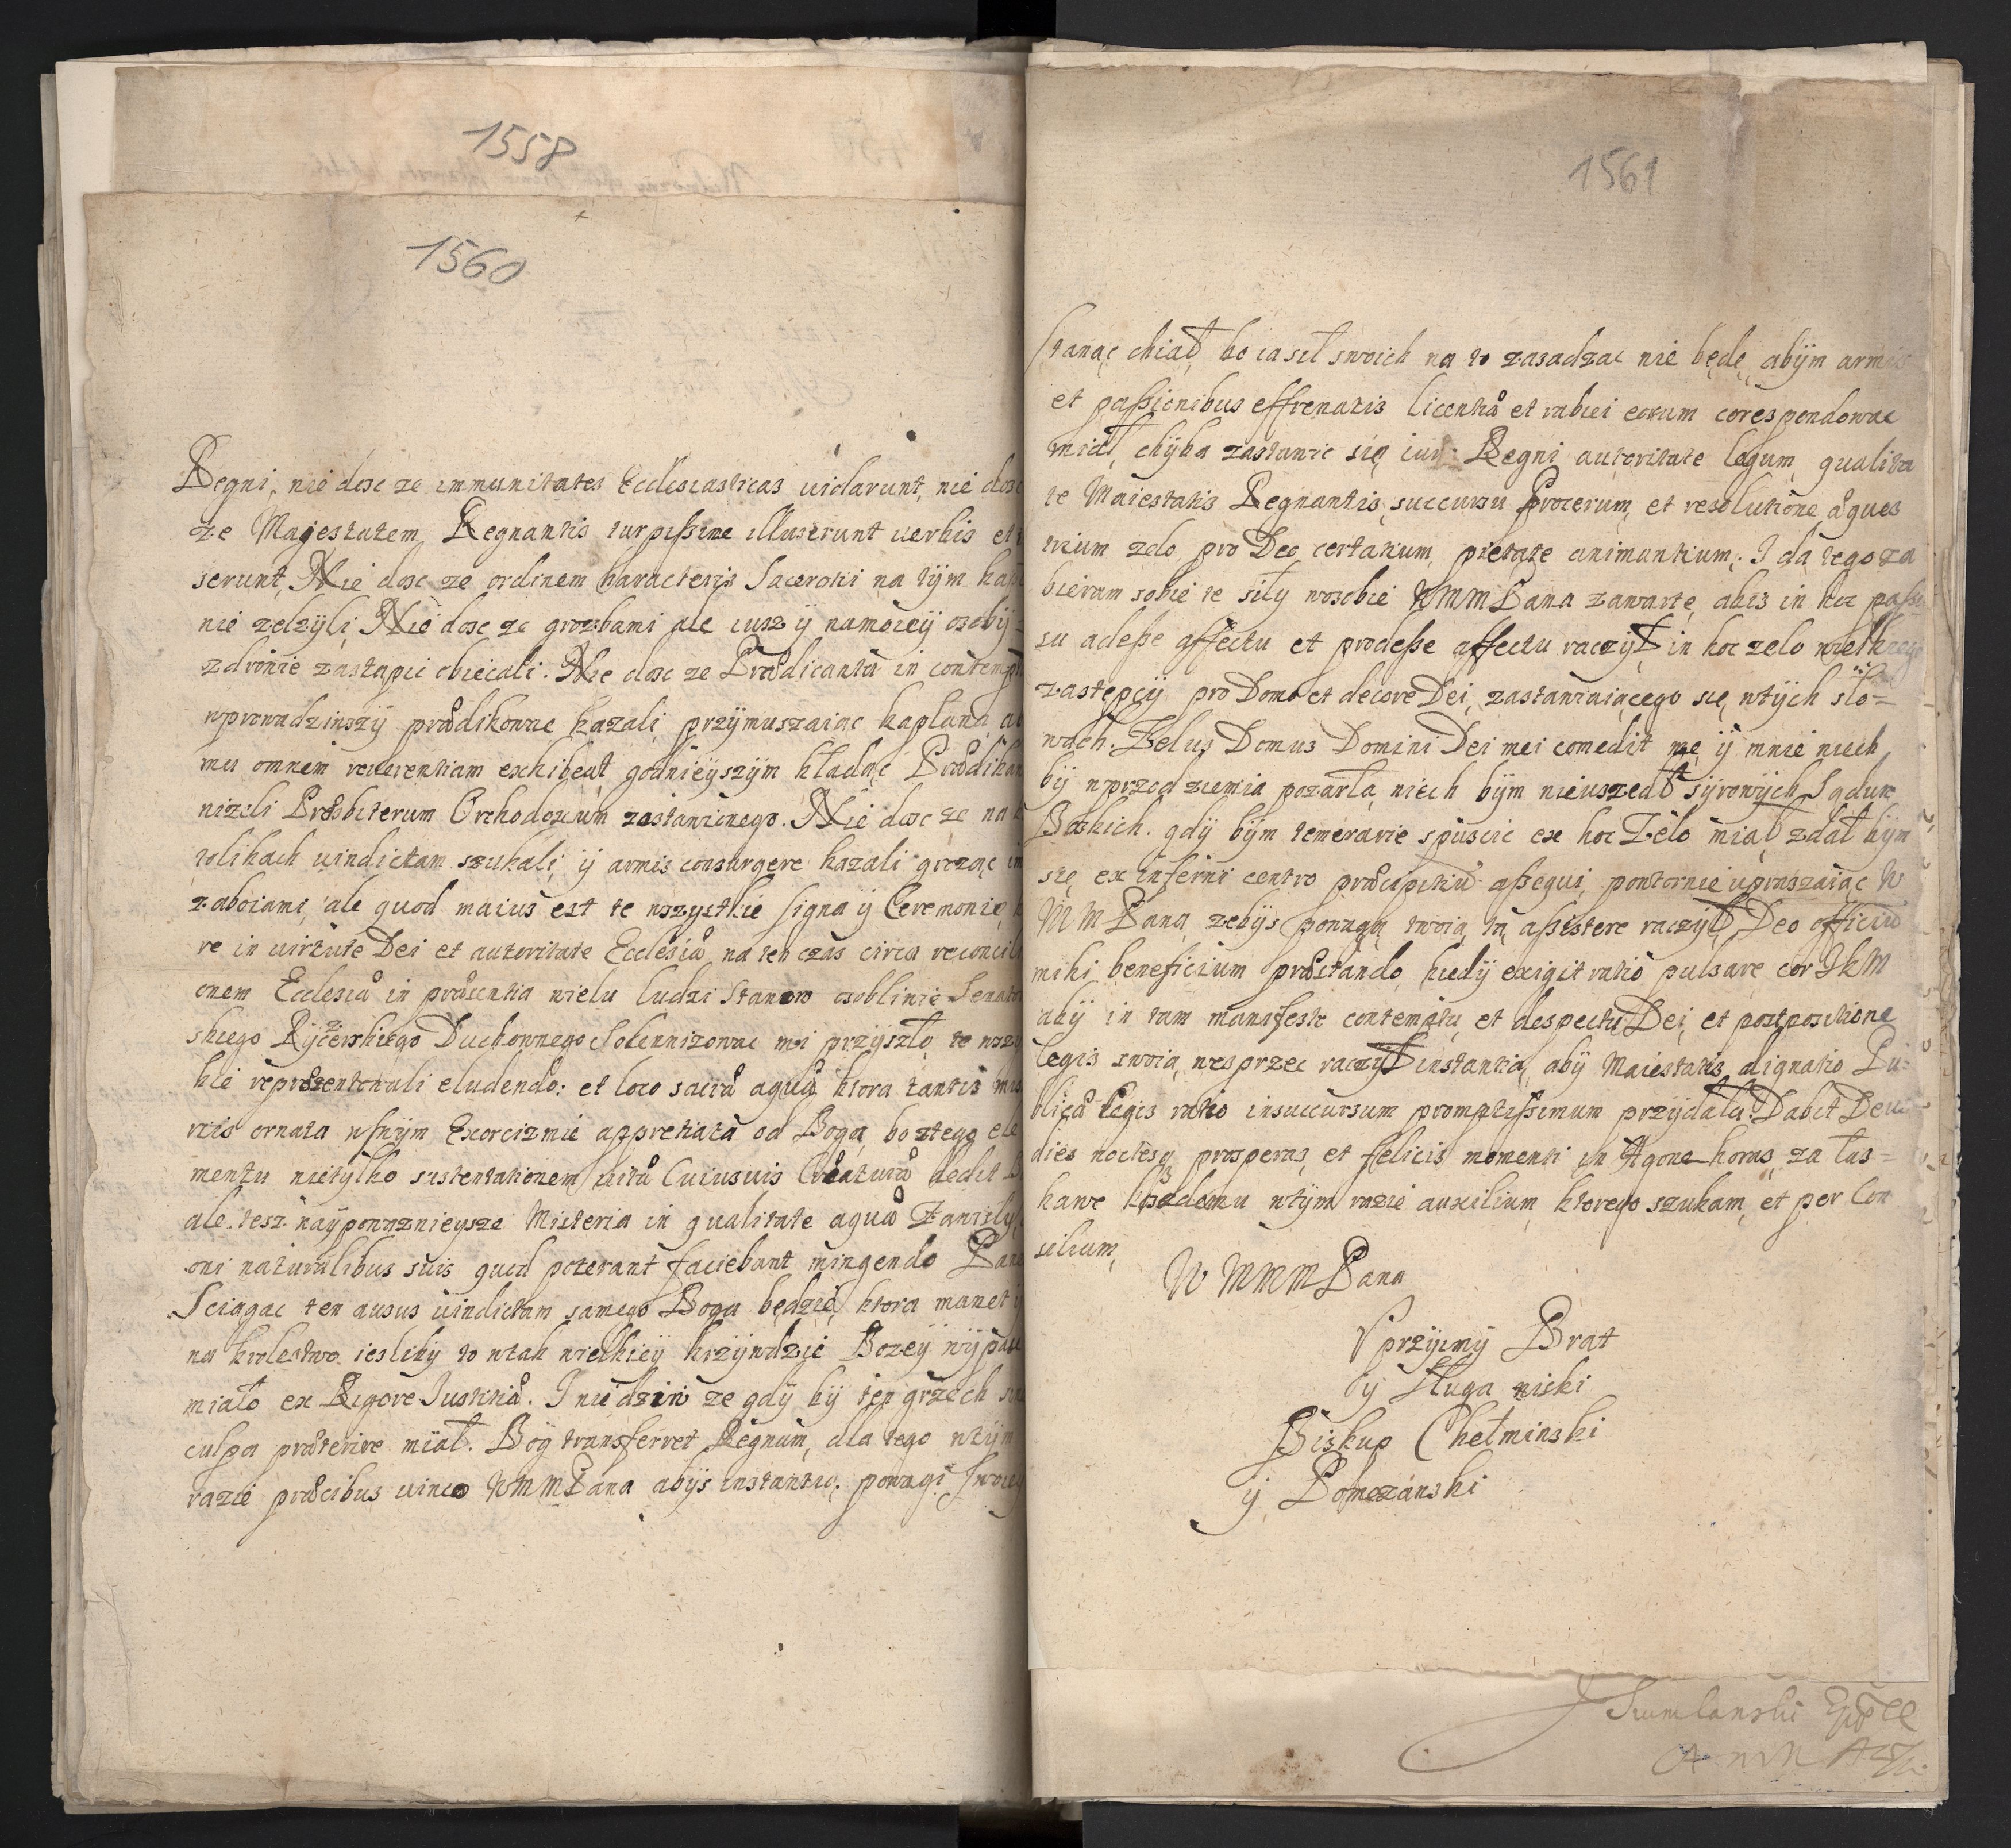 1558
1560
Regni, nié dosc ze immunitates Ecclesiasticas uiolarunt, nié dosc
ze Majestatem Regnantis turpissime illuserunt uerbis et
serunt, Nié dosc ze ordinem haracteris Sacerotii na tÿm
nié zelzÿli, Nié dosc ze grozbami ale iusz ÿ namoieÿ osobÿ
zdrowié zastąpic obiecali. Nie dosc ze Prædicantu in
wprowadziwszÿ prædikowac kazali, przÿmuszaiąc kapłana
mu omnem reuerentiam exhibeat, godnieÿszÿm kładąc
nizeli Præsbiterum Orthodoxum zostawionego. Nié dosc ze na
tolikach uindictam szukali, ÿ armis consurgere kazali grozac
zaboiami, ale quod maius est te wszystkié signa ÿ Ceremonié
re in uirtute Dei et autoritate Ecclesiæ na ten czas circa
onem Ecclesiæ in præsentia wielu ludzi Stanow osobliwié
skiego Rÿcerskiego Duchownego Solennizowac mi przÿszło, te
kié repræzentowali eludendo: et loco sacræ aquæ ktora tantis
riis ornata wswÿm Exorcizmié appretiata od Boga, bo ztego
mentu nietÿlko sustentationem uitæ Cuiusuis Creaturæ dedit
ale tesz naÿpowaznieÿsze Misteria in qualitate aquæ
oni naturalibus suis quod poterant faciebant mingendo
Sciągac ten ausus uindictam samego Boga będzié, ktora manet
na krolestwo iesliby to wtak wielkieÿ krzÿwdzié Bozeÿ
miało ex Rigore Iustitiæ. I nié dziw ze gdÿ bÿ ten grzech
culpa præterire miał. Bog transferret Regnum, dla tego wtÿm
razié præcibus uinco WMMPana abÿs instantią powagi
1561
stanąc chiał, bo ia sił swoich na to zasadzac nié będę, abÿm armis
et passionibus effrenatis licentiæ et rabiei eorum corespondowac
miał, chÿba zastawié się iura Regni autoritate legum, qualita
te Maiestatis Regnantis, succursu Procerum, et resolutione æques
trium zelo pro Deo certatium, pietate animantium. I dla tego za
bieram sobié te siły wosobié WMMPana zawarte, abis in hoc
su adesse affectu et prodesse affectu raczÿł, in hoc zelo
zastępcÿ pro Domo et decore Dei, zastawiaiącego się wtÿch sło=
wach. Zelus Domus Domini Dei mei comedit me, ÿ mnié niech
bÿ wprzod ziemia pozarła, niech bÿm nieuszedł sÿrowÿch Sądow
Boskich. gdÿ bÿm temerarie spuscic ex hoc Zelo miał, zdał bÿm
się ex inferni centro præcipitiũ assequi, powtornié upraszaiąc W
MMPana, zebÿs powagą swoią tu assistere raczÿł, Deo officiũ
mihi beneficium præstando, kiedÿ exigit ratio pulsare cor JKM
abÿ in tam manifesto contemptu et despectu Dei, et postpositione
legis swoią wesprzec raczÿł instantią, abÿ Maiestatis dignatio Pu=
blica legis ratio insuccursum promptissimum przÿdała. Dabit Deus
dies noctesq prosperas, et felicis momenti in Agone horas za łas=
kawe kazdemu wtÿm razié auxilium, ktorego szukam, et per Con
silium,
W MMMPana
Uprzÿimÿ Brat
ÿ Sługa niski
Biskup Chełminski
ÿ Pomezanski